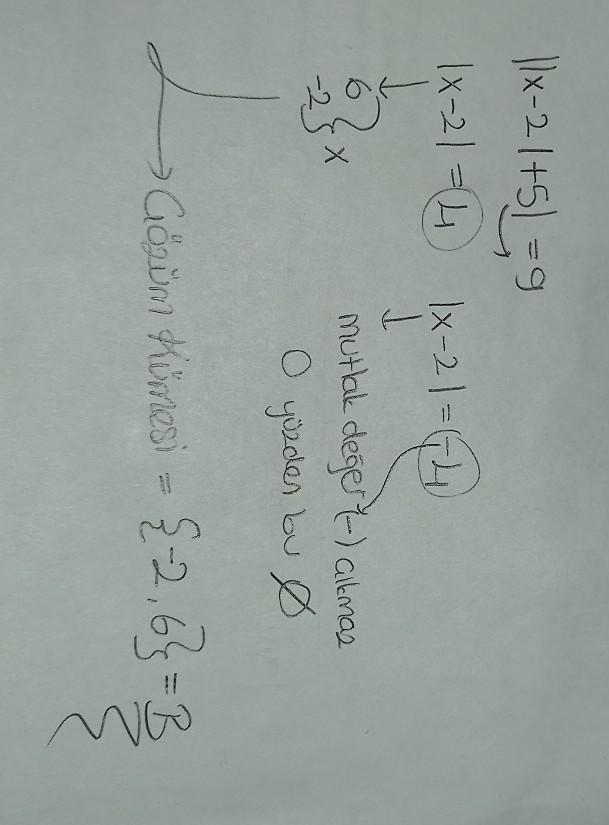 ||x-2|+5| = 9
|x-2| = 4 |x-2| = -4
6
-2 } x
mutlak değer (-) çıkmaz
O yüzden bu ∅
Çözüm Kümesi = {-2, 6} = B